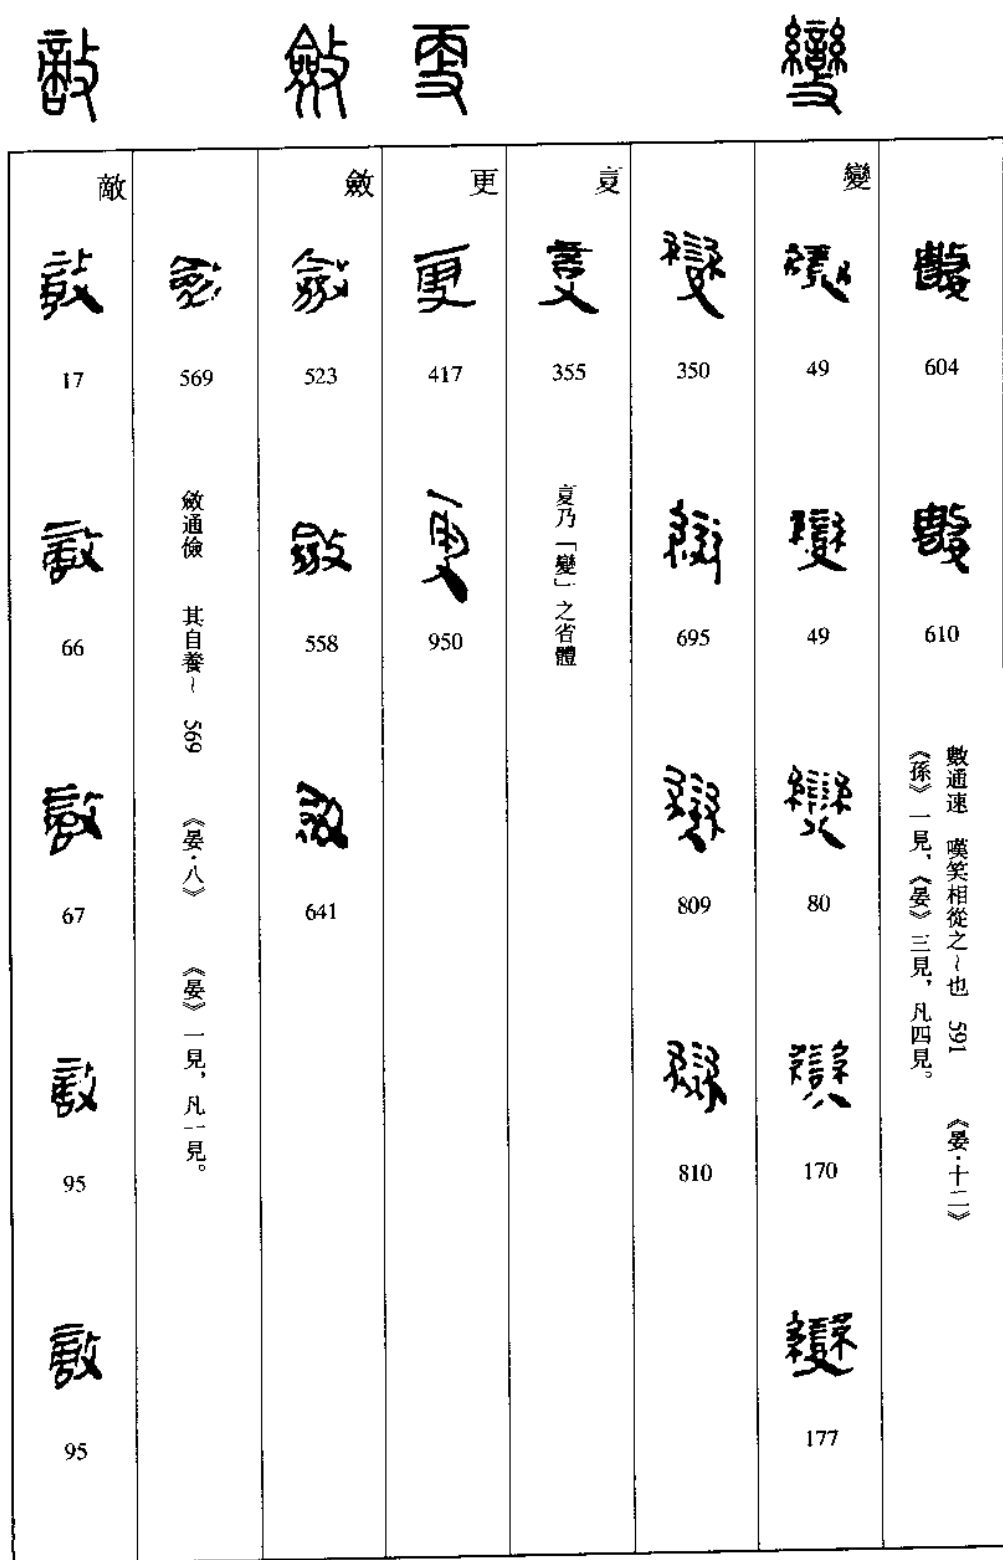 604
610
數通速　嘆笑相從之～也　591　《晏·十二》
《孫》一見，《晏》三見，凡四見。
變
49
49
80
170
177
350
695
809
810
355
乃「變」之省體
更
417
950
斂
523
558
641
569
斂通儉　其自養～　569　《晏·八》　《晏》一見，凡一見。
敵
17
66
67
95
95